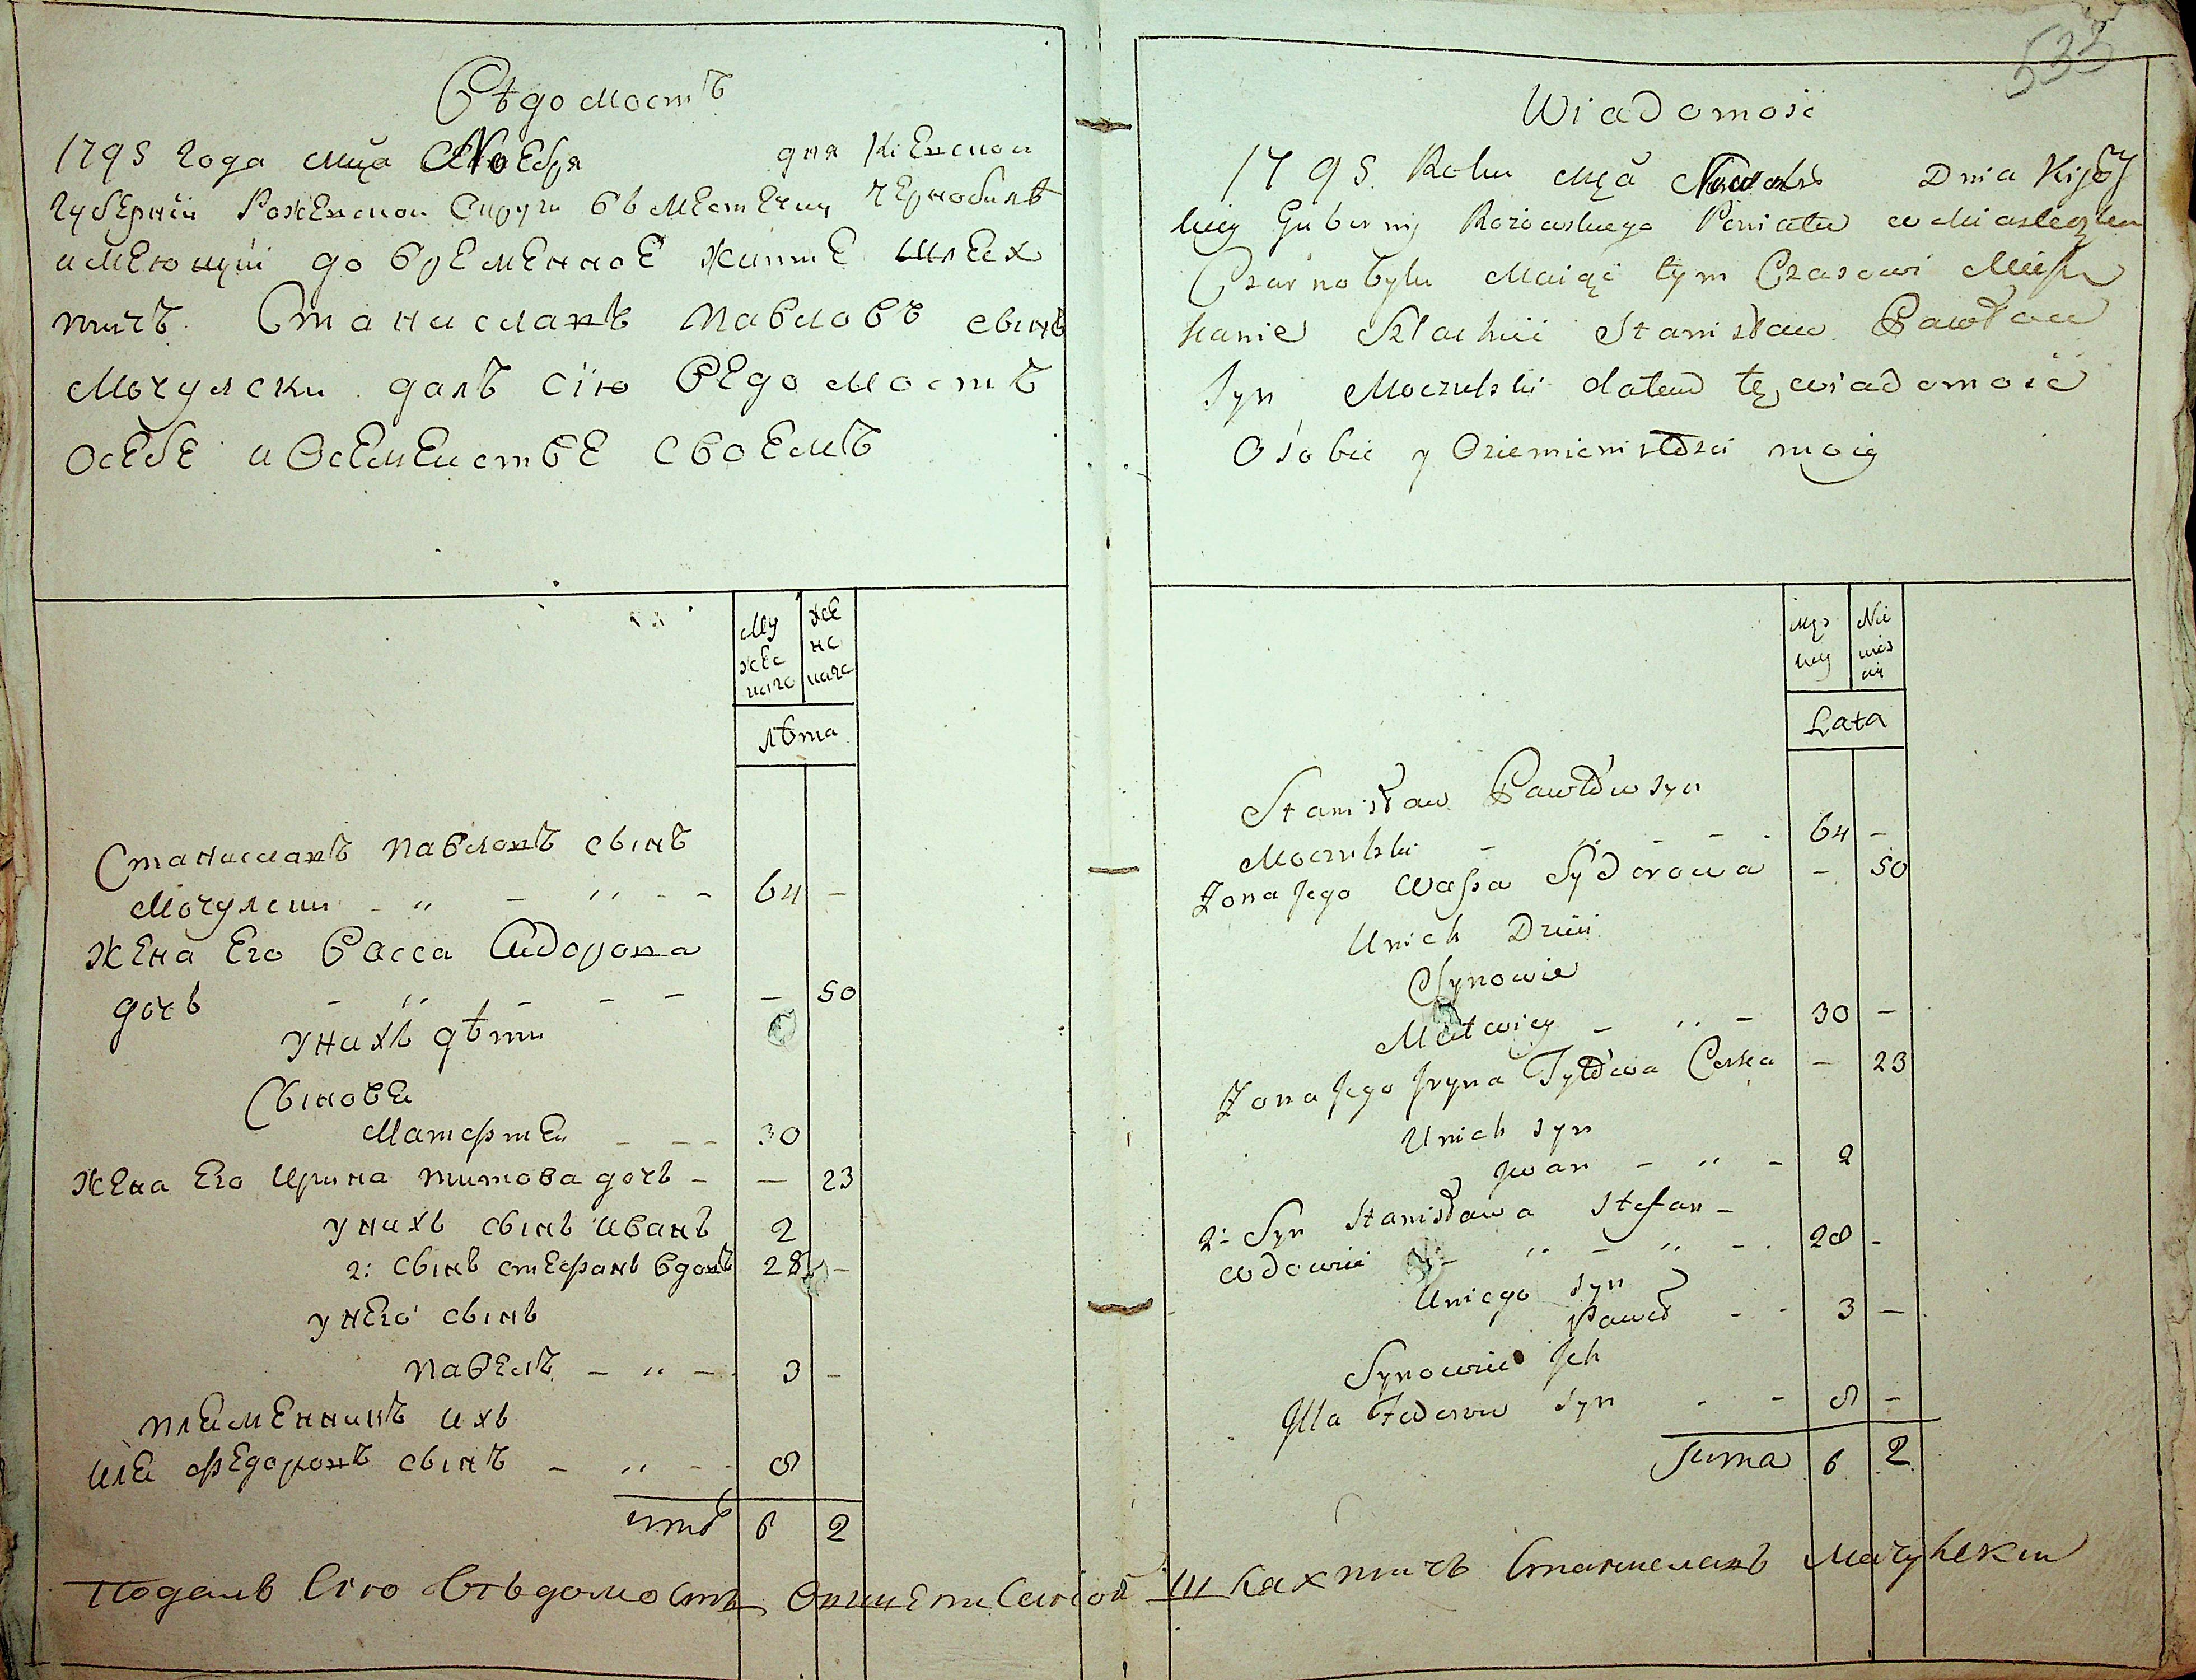 Вѣдомость
1795 года мца Ноебря дня Киевскои
губернїи Роженскои Округи въ местечку Чернобилѣ
имеющїи до временное житие шлех
тичъ Станиславъ Павловъ сынъ
Мочулски далъ сїю Ведомость
осебе и осемеистве своемъ
Му жес каго
Же нс каго
лѣта
Станиславъ Павловъ сынъ
Мочулски - " - " - - 64 -
Жена Его Васса Сидорова
дочь - " - - - - 50
у нихъ дѣти
Сынове
Матфтеи - - - 30
Жена Его Ирина титова дочь - - 23
у нихъ сынъ иванъ 2
2: сынъ стефанъ вдовъ 28 -
у него сынъ
павелъ - " - 3 -
племенникъ ихъ
илеи федоровъ сынъ - " - - 8
итого 6 2
Подалъ Сїю Вѣдомость шляхтичъ Станиславъ Мочулскии
533
Wiadomość
1795 Roku Mcą Dnia Kijow
skiey Gubernij Rożowskiego Powiatu w Miasteczku
Czarnobylu Maiąć tym Czasowi Miesz
kanie Szlachcic Stanisław Pawłow
Syn Moczulski dałem tę wiadomość
Osobie y Osiemienistwi moiey
męs kiey
Nie wies ciey
Lata
Stanisław Pawłow syn
Moczulski - " - - - 64 -
Żona Jego Wassa Sydorowa - 50
Unich Dzieci
Synowie
Matwiey - " - 30 -
Żona Jego Jryna Tytowa Corka - 23
Unich syn
Jwan - " - 2
2: Syn Stanisława Stefan -
wdowiec - " - " - 28 -
Uniego syn
Paweł - - 3 -
Synowiec Jch
Jlla Fedorow syn - - 8 -
Suma 6 2